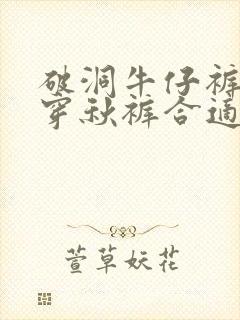 破洞牛仔裤
穿秋裤合适
萱草妖花